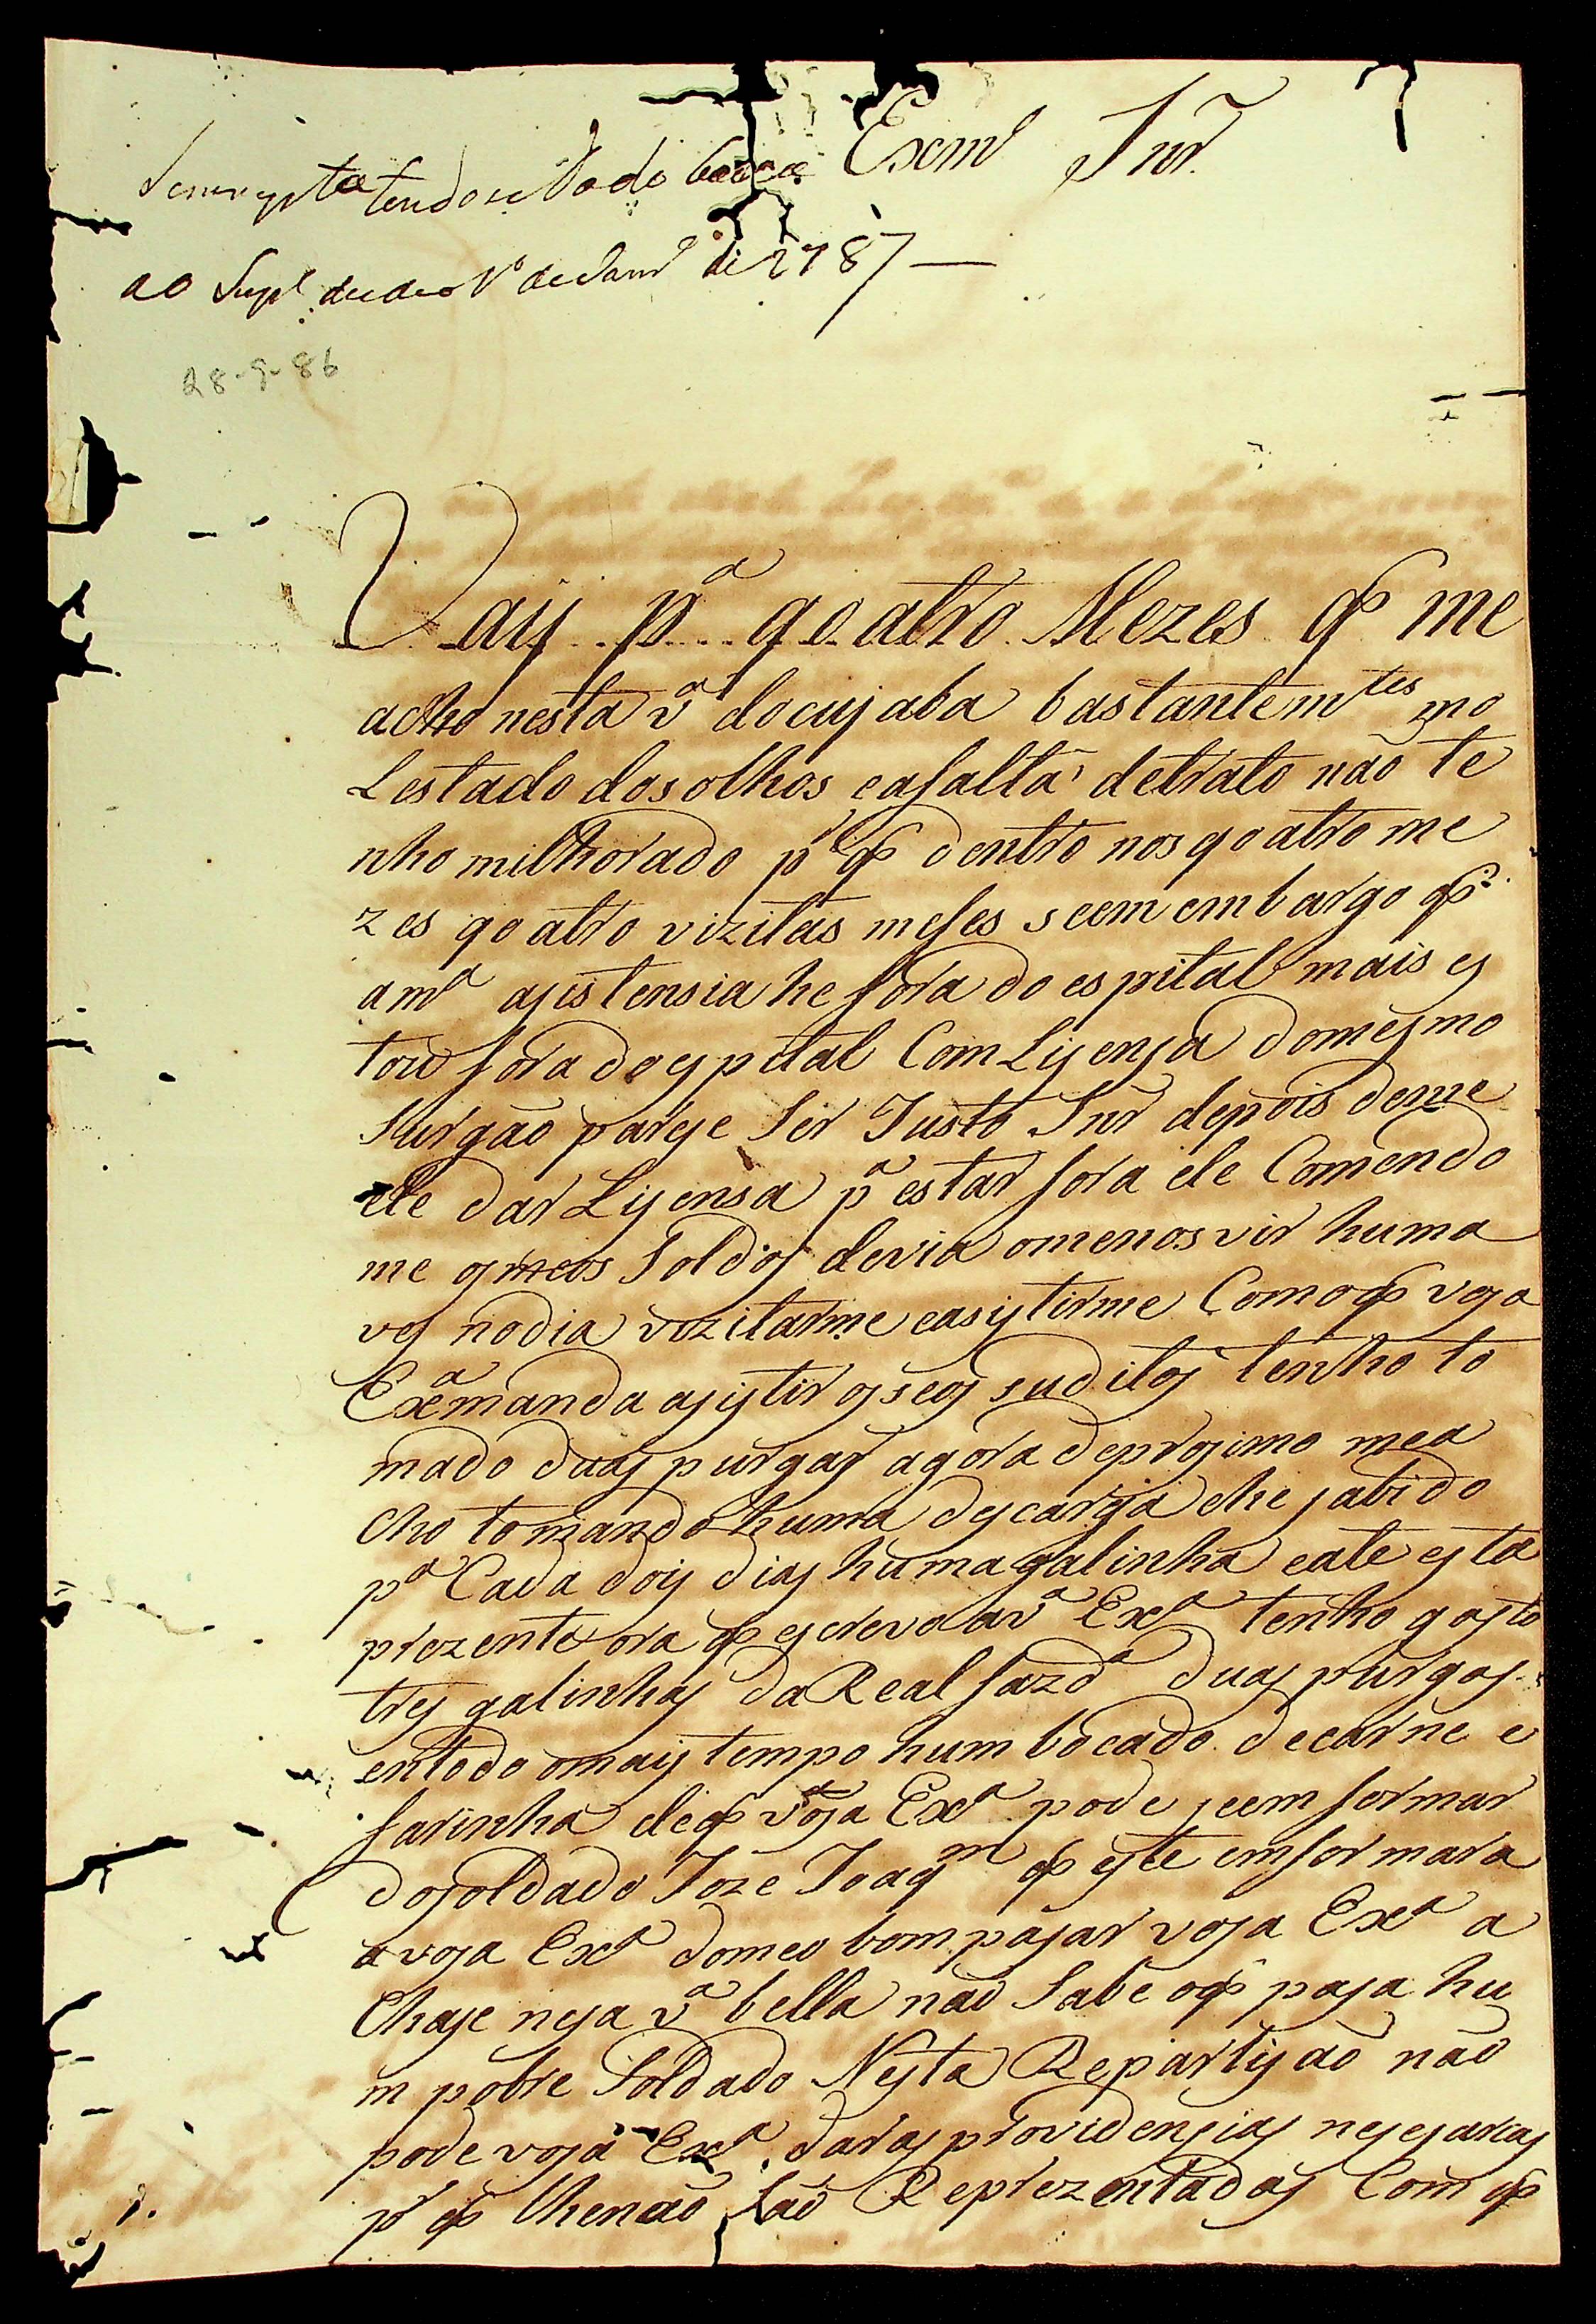 Exmo Snr.
tendose dado baixa
ao Supe. desdeo 1o deJanro de 1787
28-9-86
Vaij pa. qoatro Mezes q me
acho nesta va docujaba bastantemtes mo
Lestado dosolhos eafalta detrato não te
nho milhorado pr q dentro nos qoatro me
zes qoatro vizitas mefes seem embargo q
ama asistensia he fora do espital mais es
tou fora doespital Com Lisensa domesmo
Surgão parese Ser Justo Snr depois deme
ele dar Lisensa pa estar fora ele Comendo
me osmeos Soldos devia omenos vir huma
ves nodia vizitarme easistirme Como q vosa
Exa manda asistir osseos suditos tenho to
mado duas purgas agora deprosimo mea
cho tomando huma descarga ehe sabido
pa Cada dois dias huma galinha eate esta
prezente ora q escrevo ava Exa tenho gasto
tres galinhas da Real fazda duas purgas
entodo omais tempo hum bocado decarne e
farinha deq vosa Exa pode seem formar
dosoldado Joze Joaqm q este emformara
avosa Exa domeo bom pasar vosa Exa a
Chase nesa va bella não Sabe oq pasa hu
m pobre Soldado Nesta Repartisão não
pode vosa Exa daras providensias nesesarias
pr q lhenão são Reprezentadas Com q